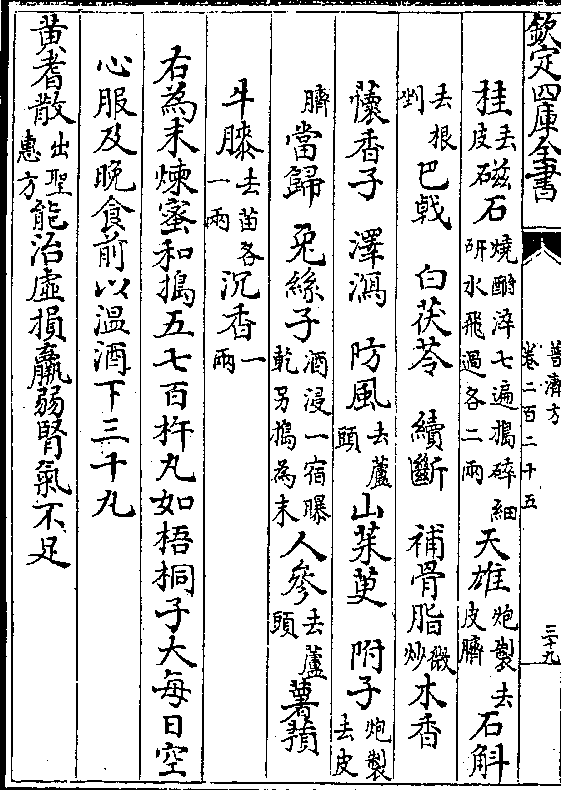 欽定四庫全書
普濟方
卷二百二十五
三十九
桂去皮磁石燒酣淬七遍搗碎細研水飛過各二兩天雄炮製去皮臍石斛
剉去根巴戟 白茯苓 續斷 補骨脂微炒木香
懷香子 澤瀉 防風去蘆頭山茱萸 附子炮製去皮
臍當歸 兎絲子酒浸一宿曝乾另搗為末人參去蘆頭薯蕷
牛膝去苗各一兩沉香一兩
右為末煉蜜和搗五七百杵丸如梧桐子大每日空
心服及晚食前以温酒下三十丸
黃耆散出聖惠方能治虛損羸弱腎氣不足